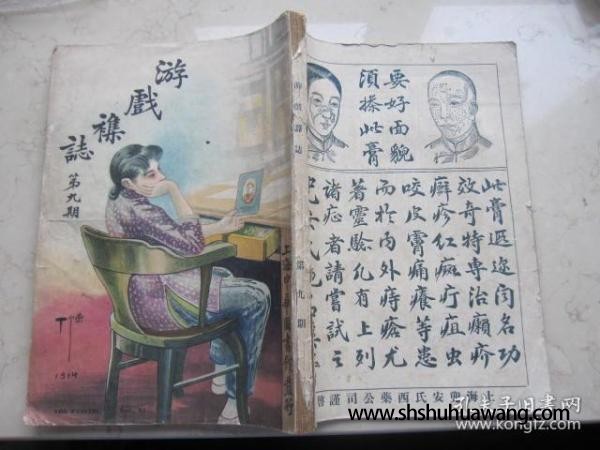 游戲襍誌
第九期
丁悚
1914
上海中華圖書館發行
游戲雜誌
第九期
要好面貌
須搽此膏
此膏遐迩聞名功
效奇特專治癩疥
癬疹紅瘢疔疽虫
咬皮膚痛癢等患
而於內外痔瘡尤
著靈驗凡有上列
諸症者請嘗試之
上海兜安氏西藥公司謹啓
www.shshuhuawang.com
孔夫子旧书网
www.kongfz.com